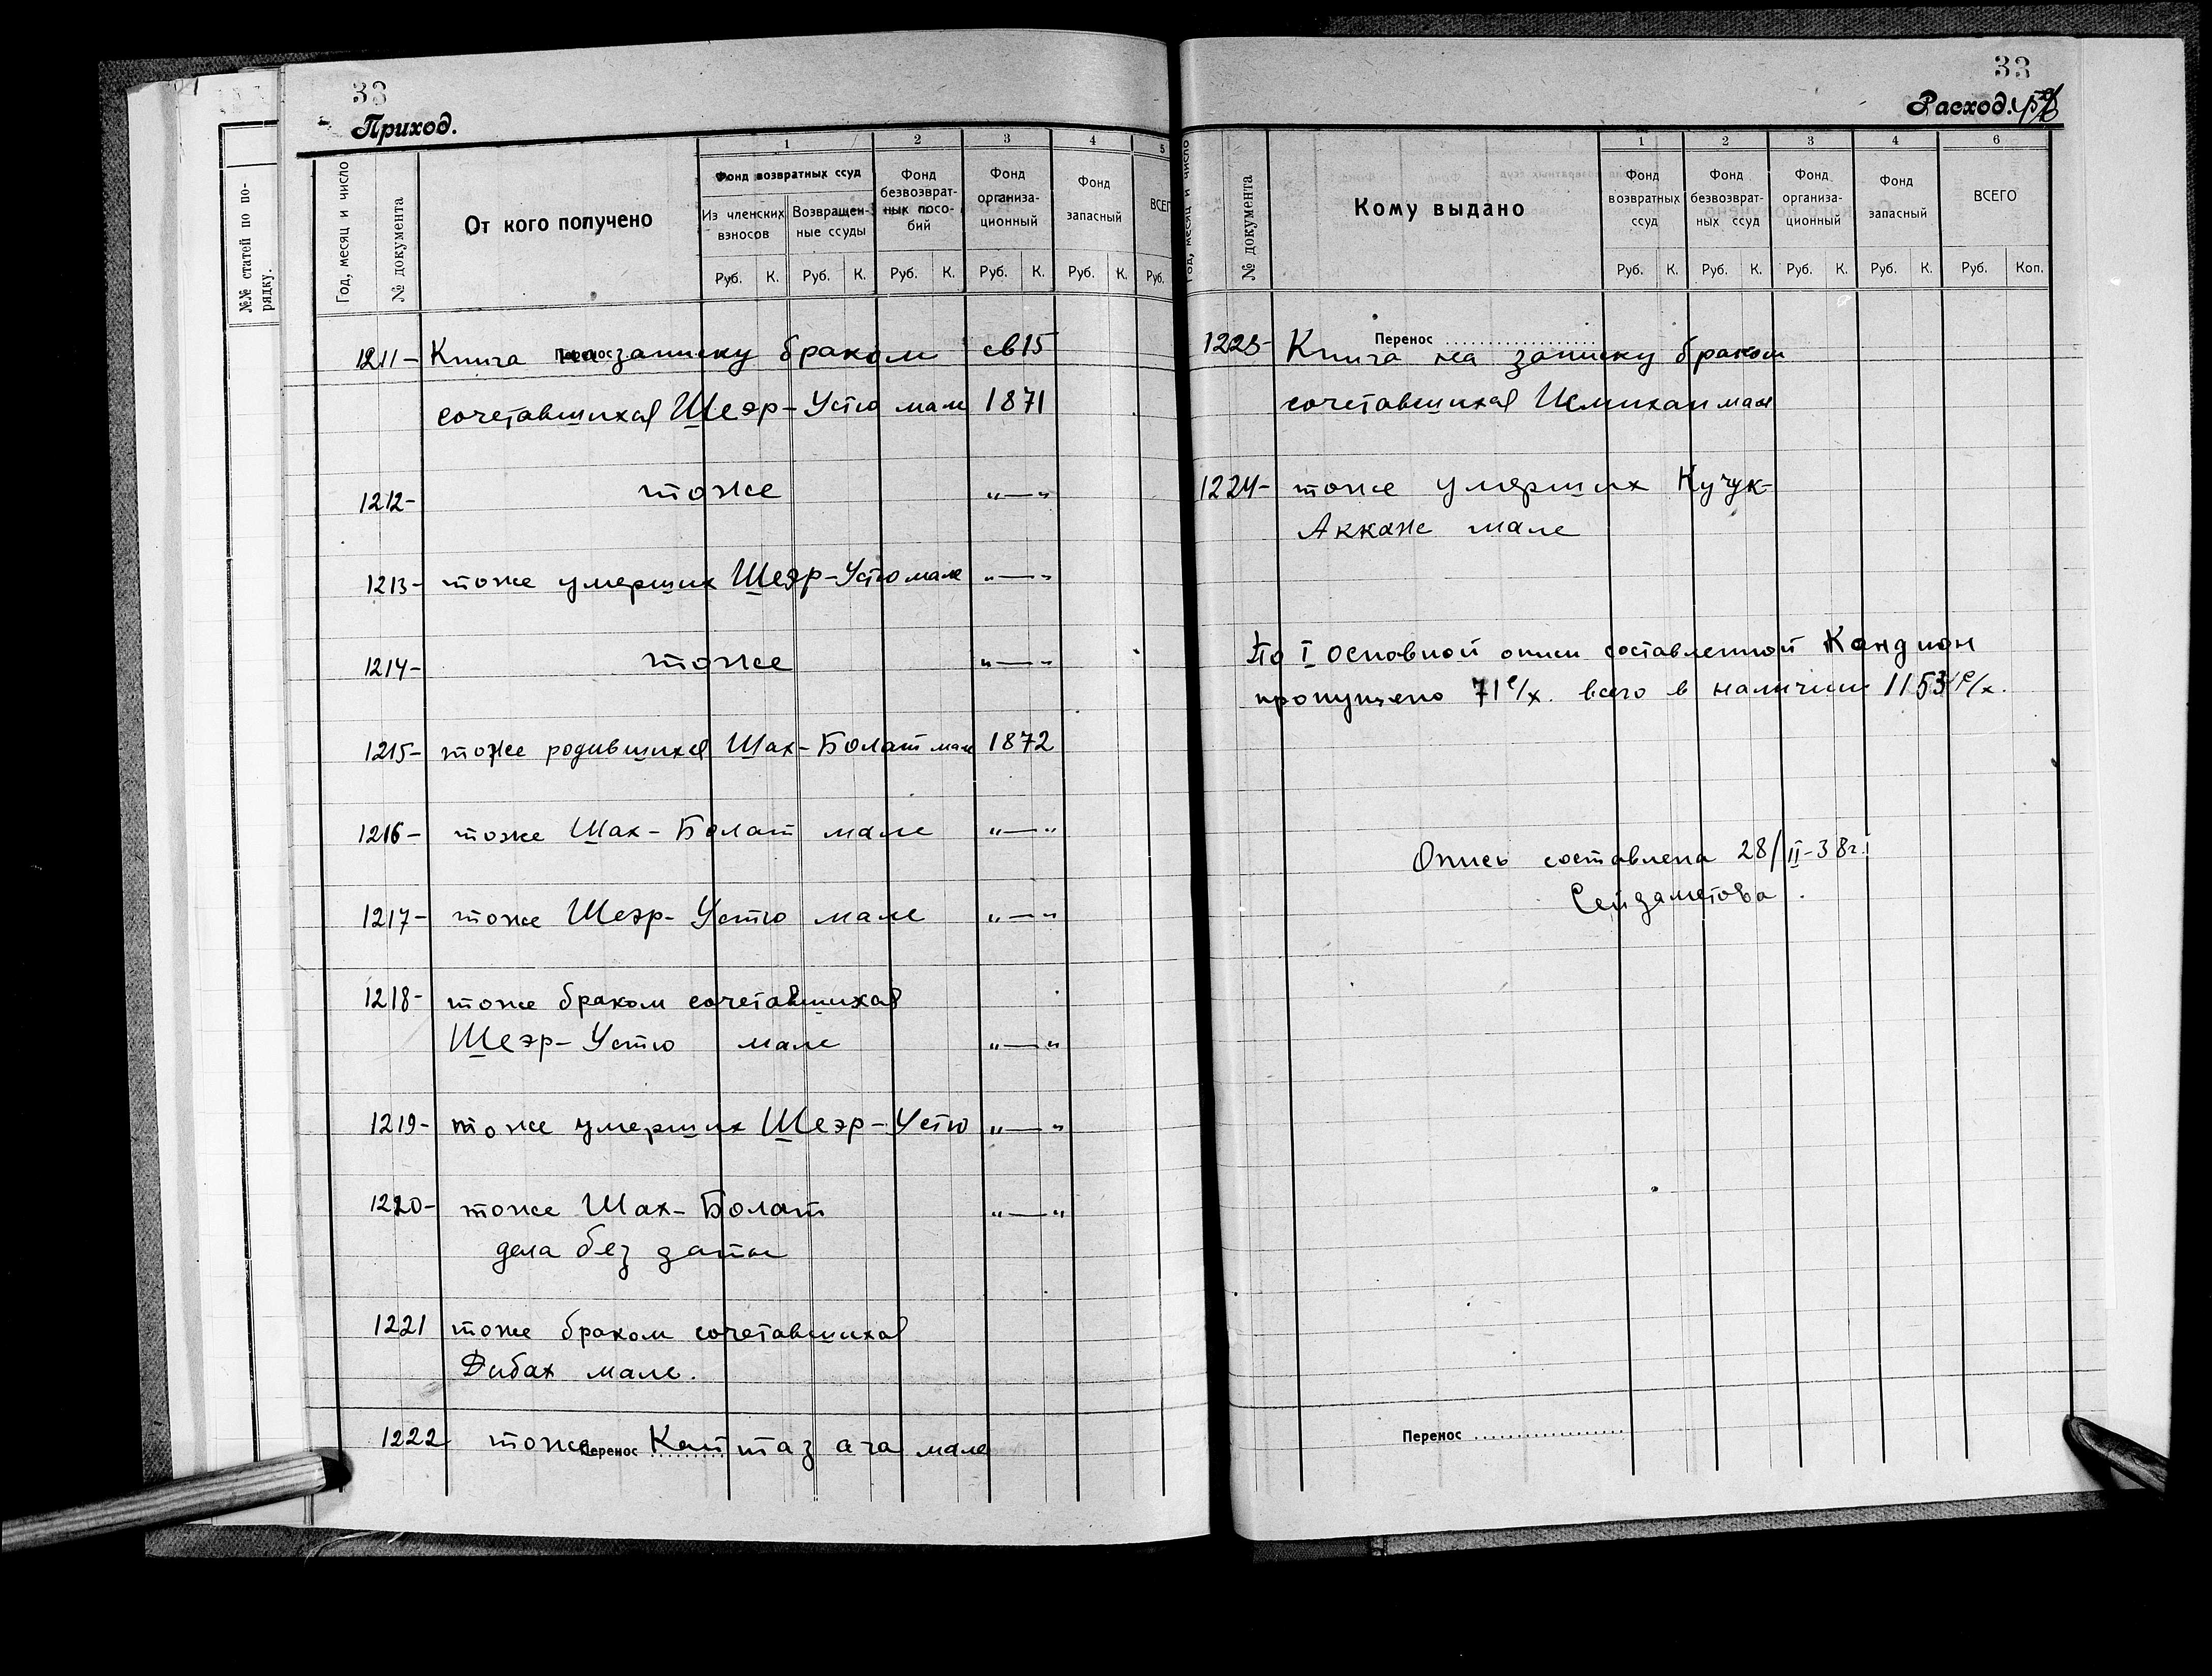 33
Приход.
№№ статей по по-
рядку.
Год, месяц и число
№ документа
От кого получено
1
Фонд возвратных ссуд
Из членских
взносов
Возвращен-
ные ссуды
2
Фонд
безвозврат-
ных посо-
бий
3
Фонд
организа-
ционный
4
Фонд
запасный
5
Руб. К. Руб. К. Руб. К. Руб. К. Руб. К. Руб.
Перенос
1211- Книга на записку браком св15
сочетавшихся Шеэр-Устю мале 1871
1212- тоже "—"
1213- тоже умерших Шеэр-Устю мале "—"
1214- тоже "—"
1215- тоже родившихся Шах-Болат мале 1872
1216- тоже Шах-Болат мале "—"
1217- тоже Шеэр-Устю мале "—"
1218- тоже браком сочетавшихся
Шеэр-Устю мале "—"
1219- тоже умерших Шеэр-Устю "—"
1220- тоже Шах-Болат "—"
дела без даты
1221 тоже браком сочетавшихся
Дибах мале.
1222 тоже Каттаз ага мале
Перенос
33
Расход.
Год, месяц и число
№ документа
Кому выдано
1
Фонд
возвратных
ссуд
2
Фонд
безвозврат-
ных ссуд
3
Фонд
организа-
ционный
4
Фонд
запасный
6
ВСЕГО
Руб. К. Руб. К. Руб. К. Руб. К. Руб. Коп.
Перенос
1223- Книга на записку браком
сочетавшихся мале
1224- тоже умерших Кучук-
Аккане мале
По I основной описи составленной
пропущено 71 е/х. всего в наличии 1153 е/х.
Опись составлена 28/II-38г.
Сейдаметова
Перенос